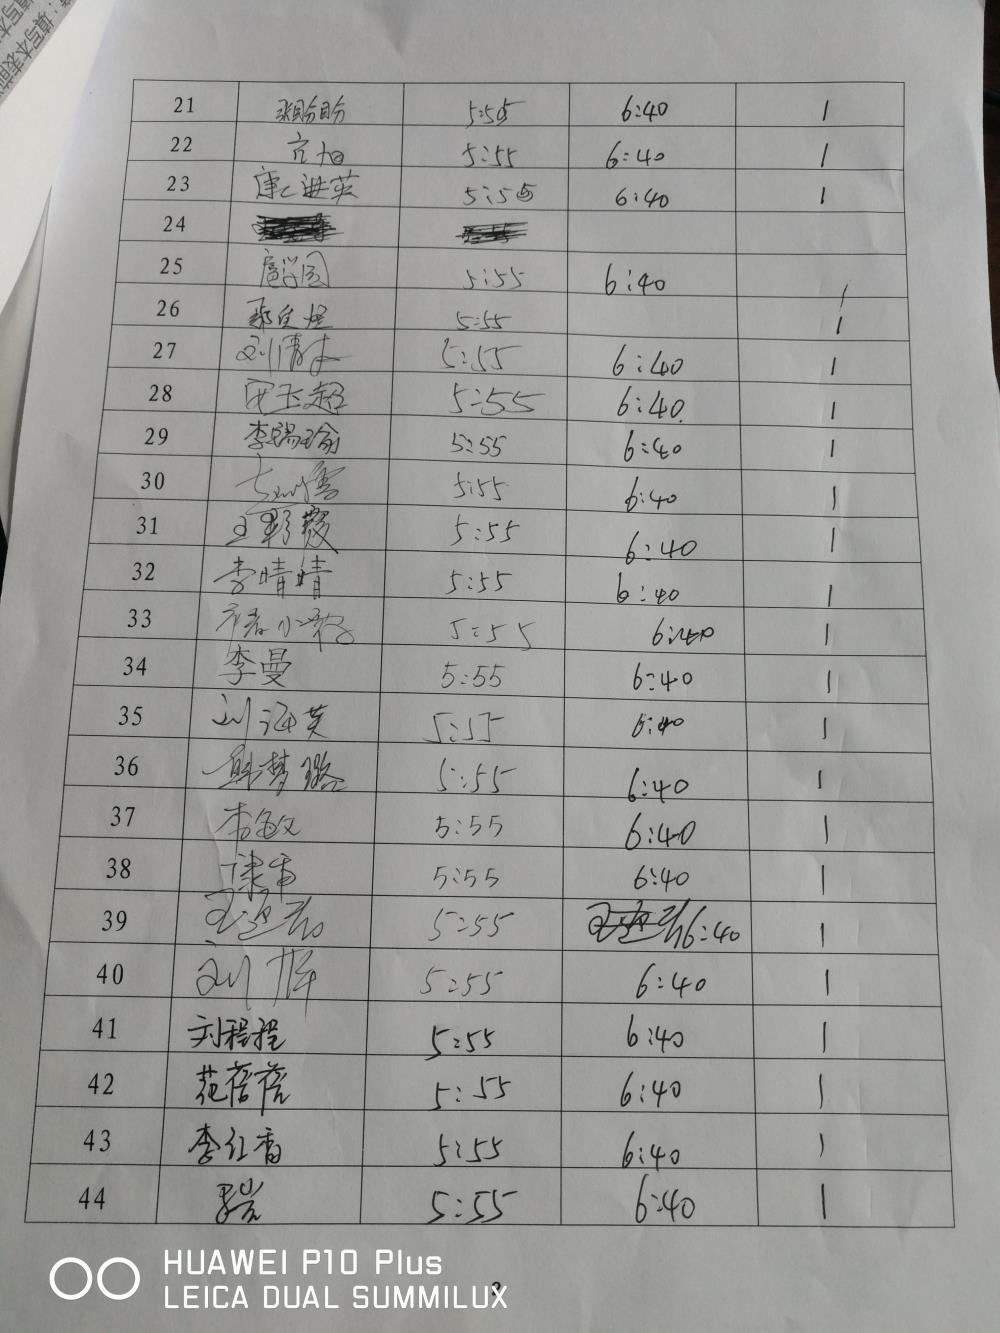 21 张盼盼 5:55 6:40 1
22 亢旭 5:55 6:40 1
23 5:55 6:40 1
24
25 5:55 6:40 1
26 5:55 1
27 刘清 5:55 6:40 1
28 田玉超 5:55 6:40 1
29 李瑞瑜 5:55 6:40 1
30 5:55 6:40 1
31 王彩霞 5:55 6:40 1
32 李晴晴 5:55 6:40 1
33 5:55 6:40 1
34 李曼 5:55 6:40 1
35 刘海英 5:55 6:40 1
36 韩梦璐 5:55 6:40 1
37 李敏 5:55 6:40 1
38 5:55 6:40 1
39 5:55 6:40 1
40 刘 5:55 6:40 1
41 刘程程 5:55 6:40 1
42 范蓓蓓 5:55 6:40 1
43 李红香 5:55 6:40 1
44 5:55 6:40 1
HUAWEI P10 Plus
LEICA DUAL SUMMILUX